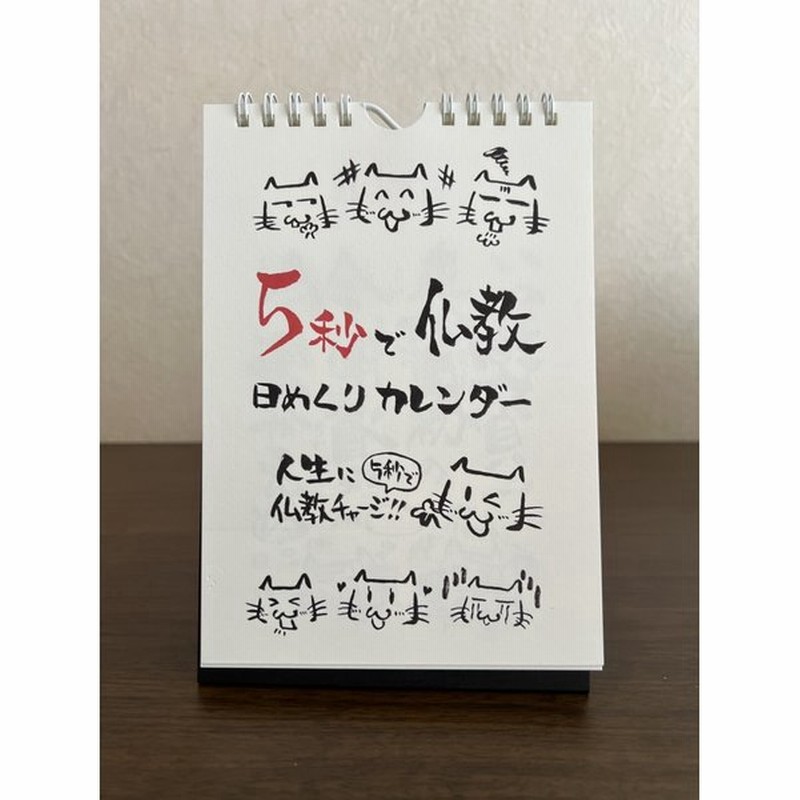 5秒で仏教
日めくりカレンダー
人生に 5秒で
仏教チャージ!!